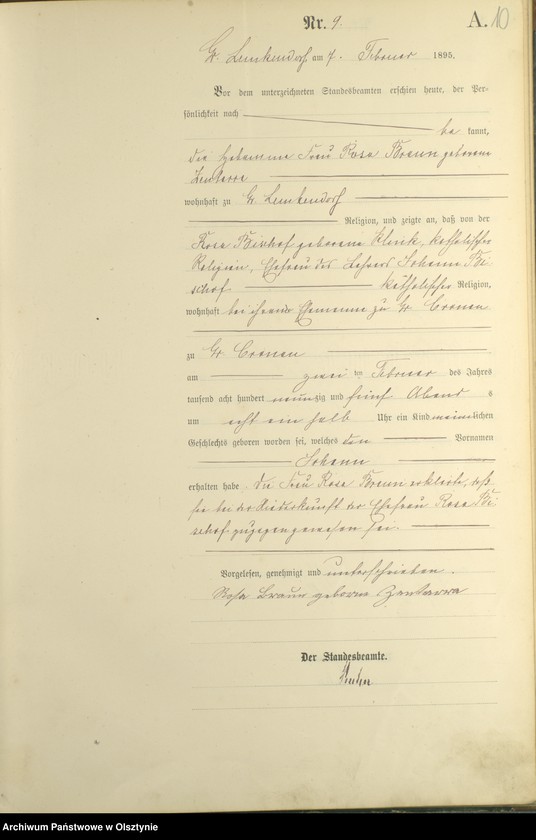 Nr. 9.
A. 10
Gr. Lemkendorf am 7. Februar 1895.
Vor dem unterzeichneten Standesbeamten erschien heute, der Per-
sönlichkeit nach
be kannt,
die Hebamme Frau Rosa Braun geborene
Zentarra
wohnhaft zu Gr. Lemkendorf
Religion, und zeigte an, daß von der
Rosa Bischof geborene Klink, katholischer
Religion, Ehefrau des Lehrers Johann Bi-
schof katholischer Religion,
wohnhaft bei ihrem Ehemanne zu Gr. Cronau
zu Gr. Cronau
am zwei ten Februar des Jahres
tausend acht hundert neunzig und fünf Abend s
um acht ein halb Uhr ein Kind männlichen
Geschlechts geboren worden sei, welches den Vornamen
Johann
erhalten habe die Frau Rosa Braun erklärte, daß
sie bei der Niederkunft der Ehefrau Rosa Bi-
schof zugegen gewesen sei.
Vorgelesen, genehmigt und unterschrieben.
Rosa Braun geborne Zentarra
Der Standesbeamte.
Archiwum Państwowe w Olsztynie